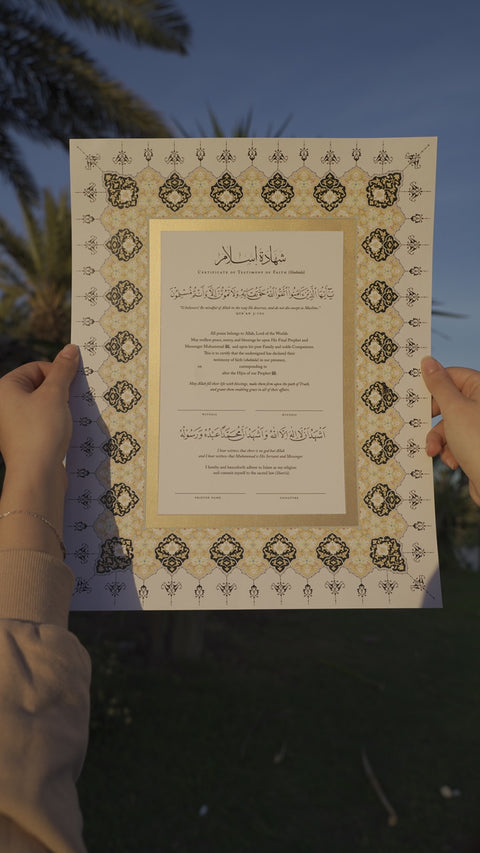 شهادة إسلام
CERTIFICATE OF TESTIMONY OF FAITH (Shahada)
يَا أَيُّهَا الَّذِينَ آمَنُوا اتَّقُوا اللَّهَ حَقَّ تُقَاتِهِ وَلَا تَمُوتُنَّ إِلَّا وَأَنْتُمْ مُسْلِمُونَ
"O believers! Be mindful of Allah in the way He deserves, and do not die except as Muslims."
QUR'AN 3:102
All praise belongs to Allah, Lord of the Worlds.
May endless peace, mercy, and blessings be upon His Final Prophet and
Messenger Muhammad ﷺ, and upon his pure Family and noble Companions.
This is to certify that the undersigned has declared their
testimony of faith (shahada) in our presence,
on corresponding to
after the Hijra of our Prophet ﷺ.
May Allah fill their life with blessings, make them firm upon the path of Truth,
and grant them enabling grace in all of their affairs.
WITNESS WITNESS
أَشْهَدُ أَنْ لَا إِلَٰهَ إِلَّا اللَّهُ وَأَشْهَدُ أَنَّ مُحَمَّدًا عَبْدُهُ وَرَسُولُهُ
I bear witness that there is no god but Allah
and I bear witness that Muhammad is His Servant and Messenger
I hereby and henceforth adhere to Islam as my religion
and commit myself to the sacred law (Sharia).
PRINTED NAME SIGNATURE